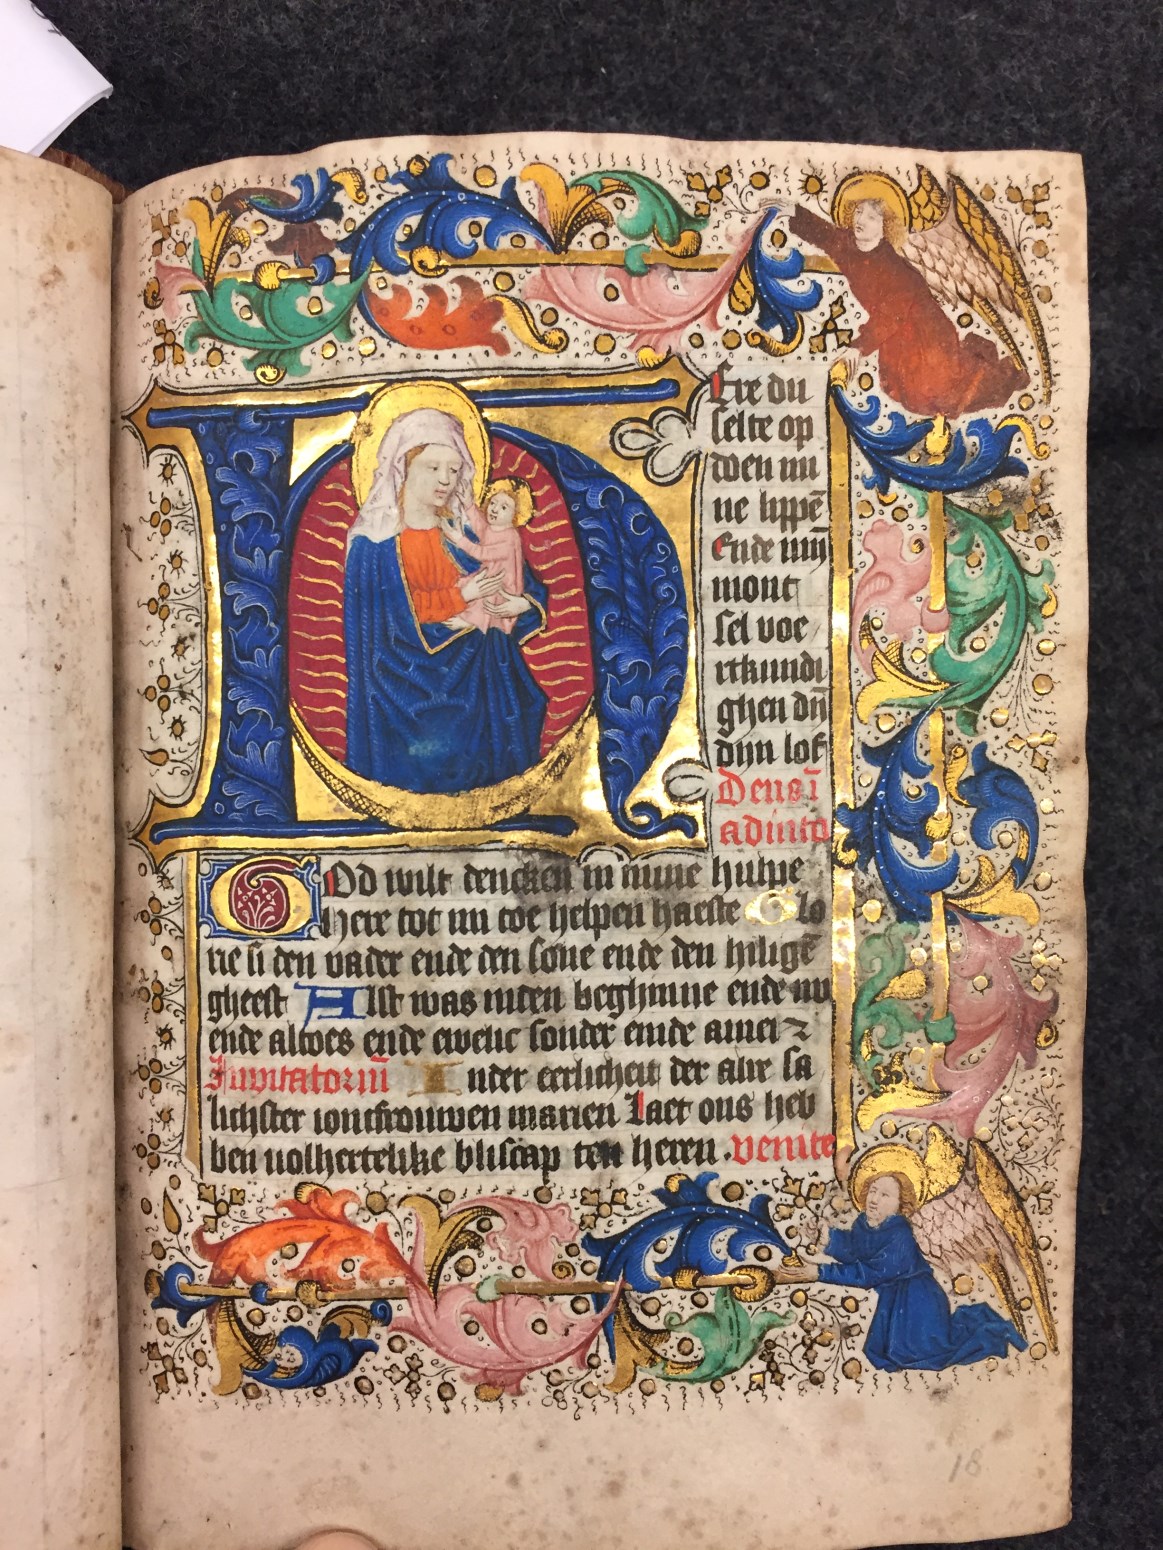 HEre du
selte op
doen mi
ne lippē
Ende mijn
mont
sel voe
rtkundi
ghen dn̄
dijn lof
Deus ī
adiuto
GOd wilt dencken in mine hulpe
here tot mi toe helpen haeste Glo
rie si den vader ende den sone ende den hilighē
gheest Alst was inden beghinne ende nv
ende altoes ende ewelic sonder einde amen
Inuitatoriū In der eerlicheit der alre sa
lichster ioncfrouwen marien Laet ons heb
ben volhertelike bliscap ten heren. venite
18